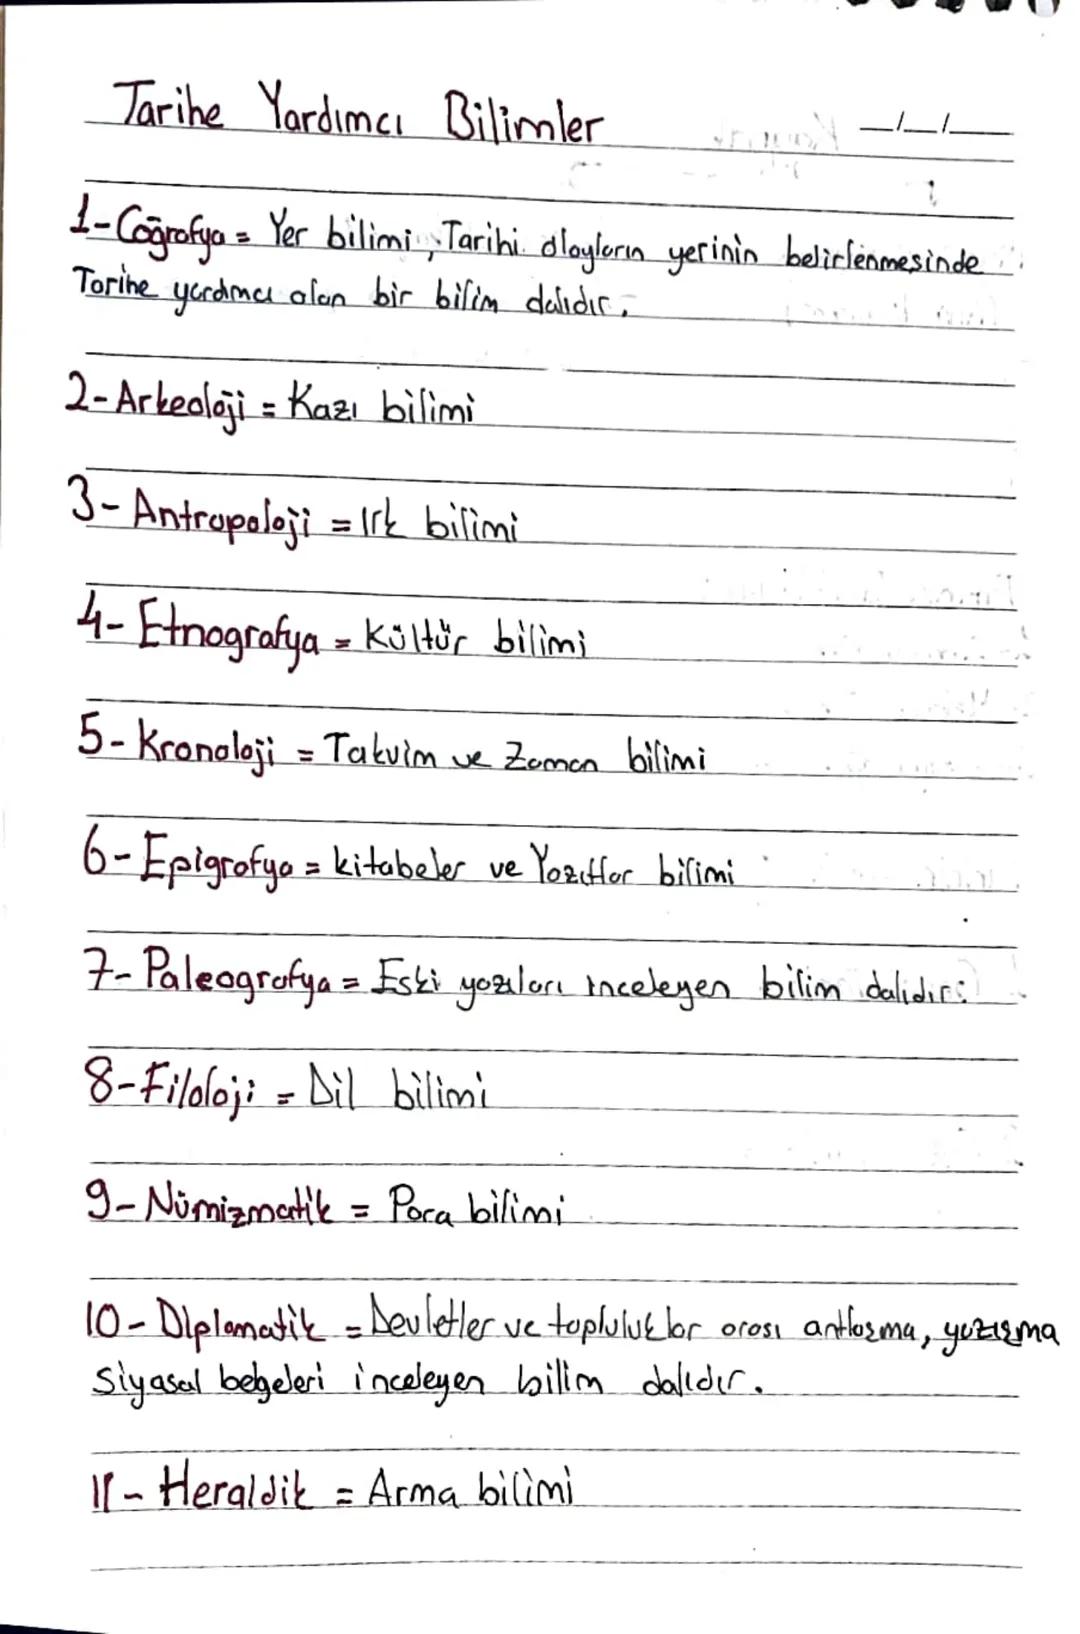 Tarihe Yardımcı Bilimler
1-Coğrafya = Yer bilimi, Tarihi olayların yerinin belirlenmesinde
Tarihe yardımcı olan bir bilim dalıdır.
2-Arkeoloji = Kazı bilimi
3-Antropoloji = Irk bilimi
4-Etnografya = Kültür bilimi
5-Kronoloji = Takvim ve Zaman bilimi
6-Epigrafya = kitabeler ve Yazıtlar bilimi
7-Paleografya = Eski yazıları inceleyen bilim dalıdır.
8-Filoloji = Dil bilimi
9-Nümizmatik = Para bilimi
10-Diplomatik = Devletler ve topluluklar arası antlaşma, yazışma
siyasal belgeleri inceleyen bilim dalıdır.
11-Heraldik = Arma bilimi